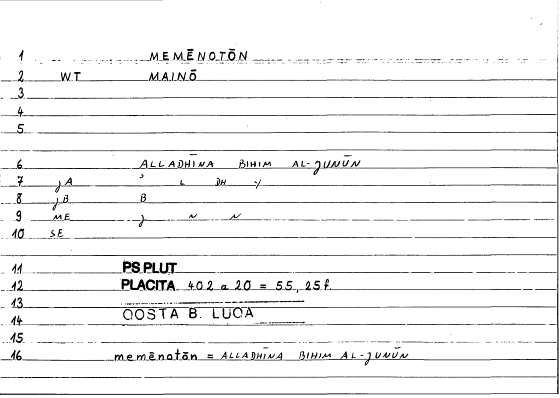 1 MEMĒNOTŌN
2 WT MAINŌ
3
4
5
6 ALLADHĪNA BIHIM AL-JUNŪN
7 JA ' L DH Y
8 JB B
9 ME J N N
10 SE
11 PS PLUT
12 PLACITA 402 a 20 = 55, 25f.
13
14 QOSTA B. LUQA
15
16 memēnotōn = ALLADHĪNA BIHIM AL-JUNŪN